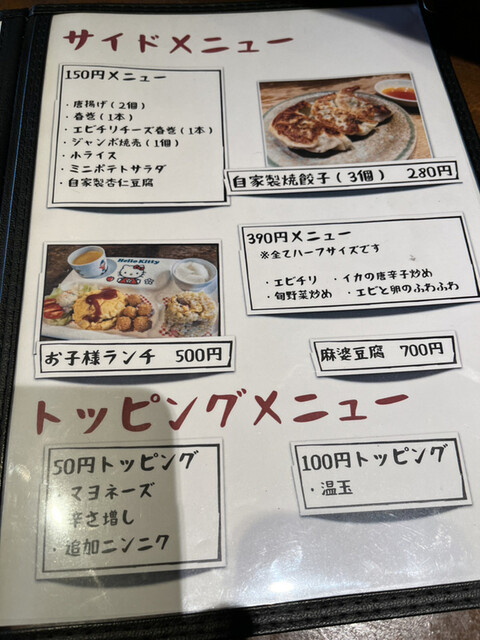 サイドメニュー
150円メニュー
・唐揚げ(2個)
・春巻(1本)
・エビチリチーズ春巻(1本)
・ジャンボ焼売(1個)
・小ライス
・ミニポテトサラダ
・自家製杏仁豆腐
自家製焼餃子(3個) 280円
390円メニュー
※全てハーフサイズです
・エビチリ ・イカの唐辛子炒め
・旬野菜炒め ・エビと卵のふわふわ
Hello Kitty
お子様ランチ 500円
麻婆豆腐 700円
トッピングメニュー
50円トッピング
・マヨネーズ
辛さ増し
・追加ニンニク
100円トッピング
・温玉